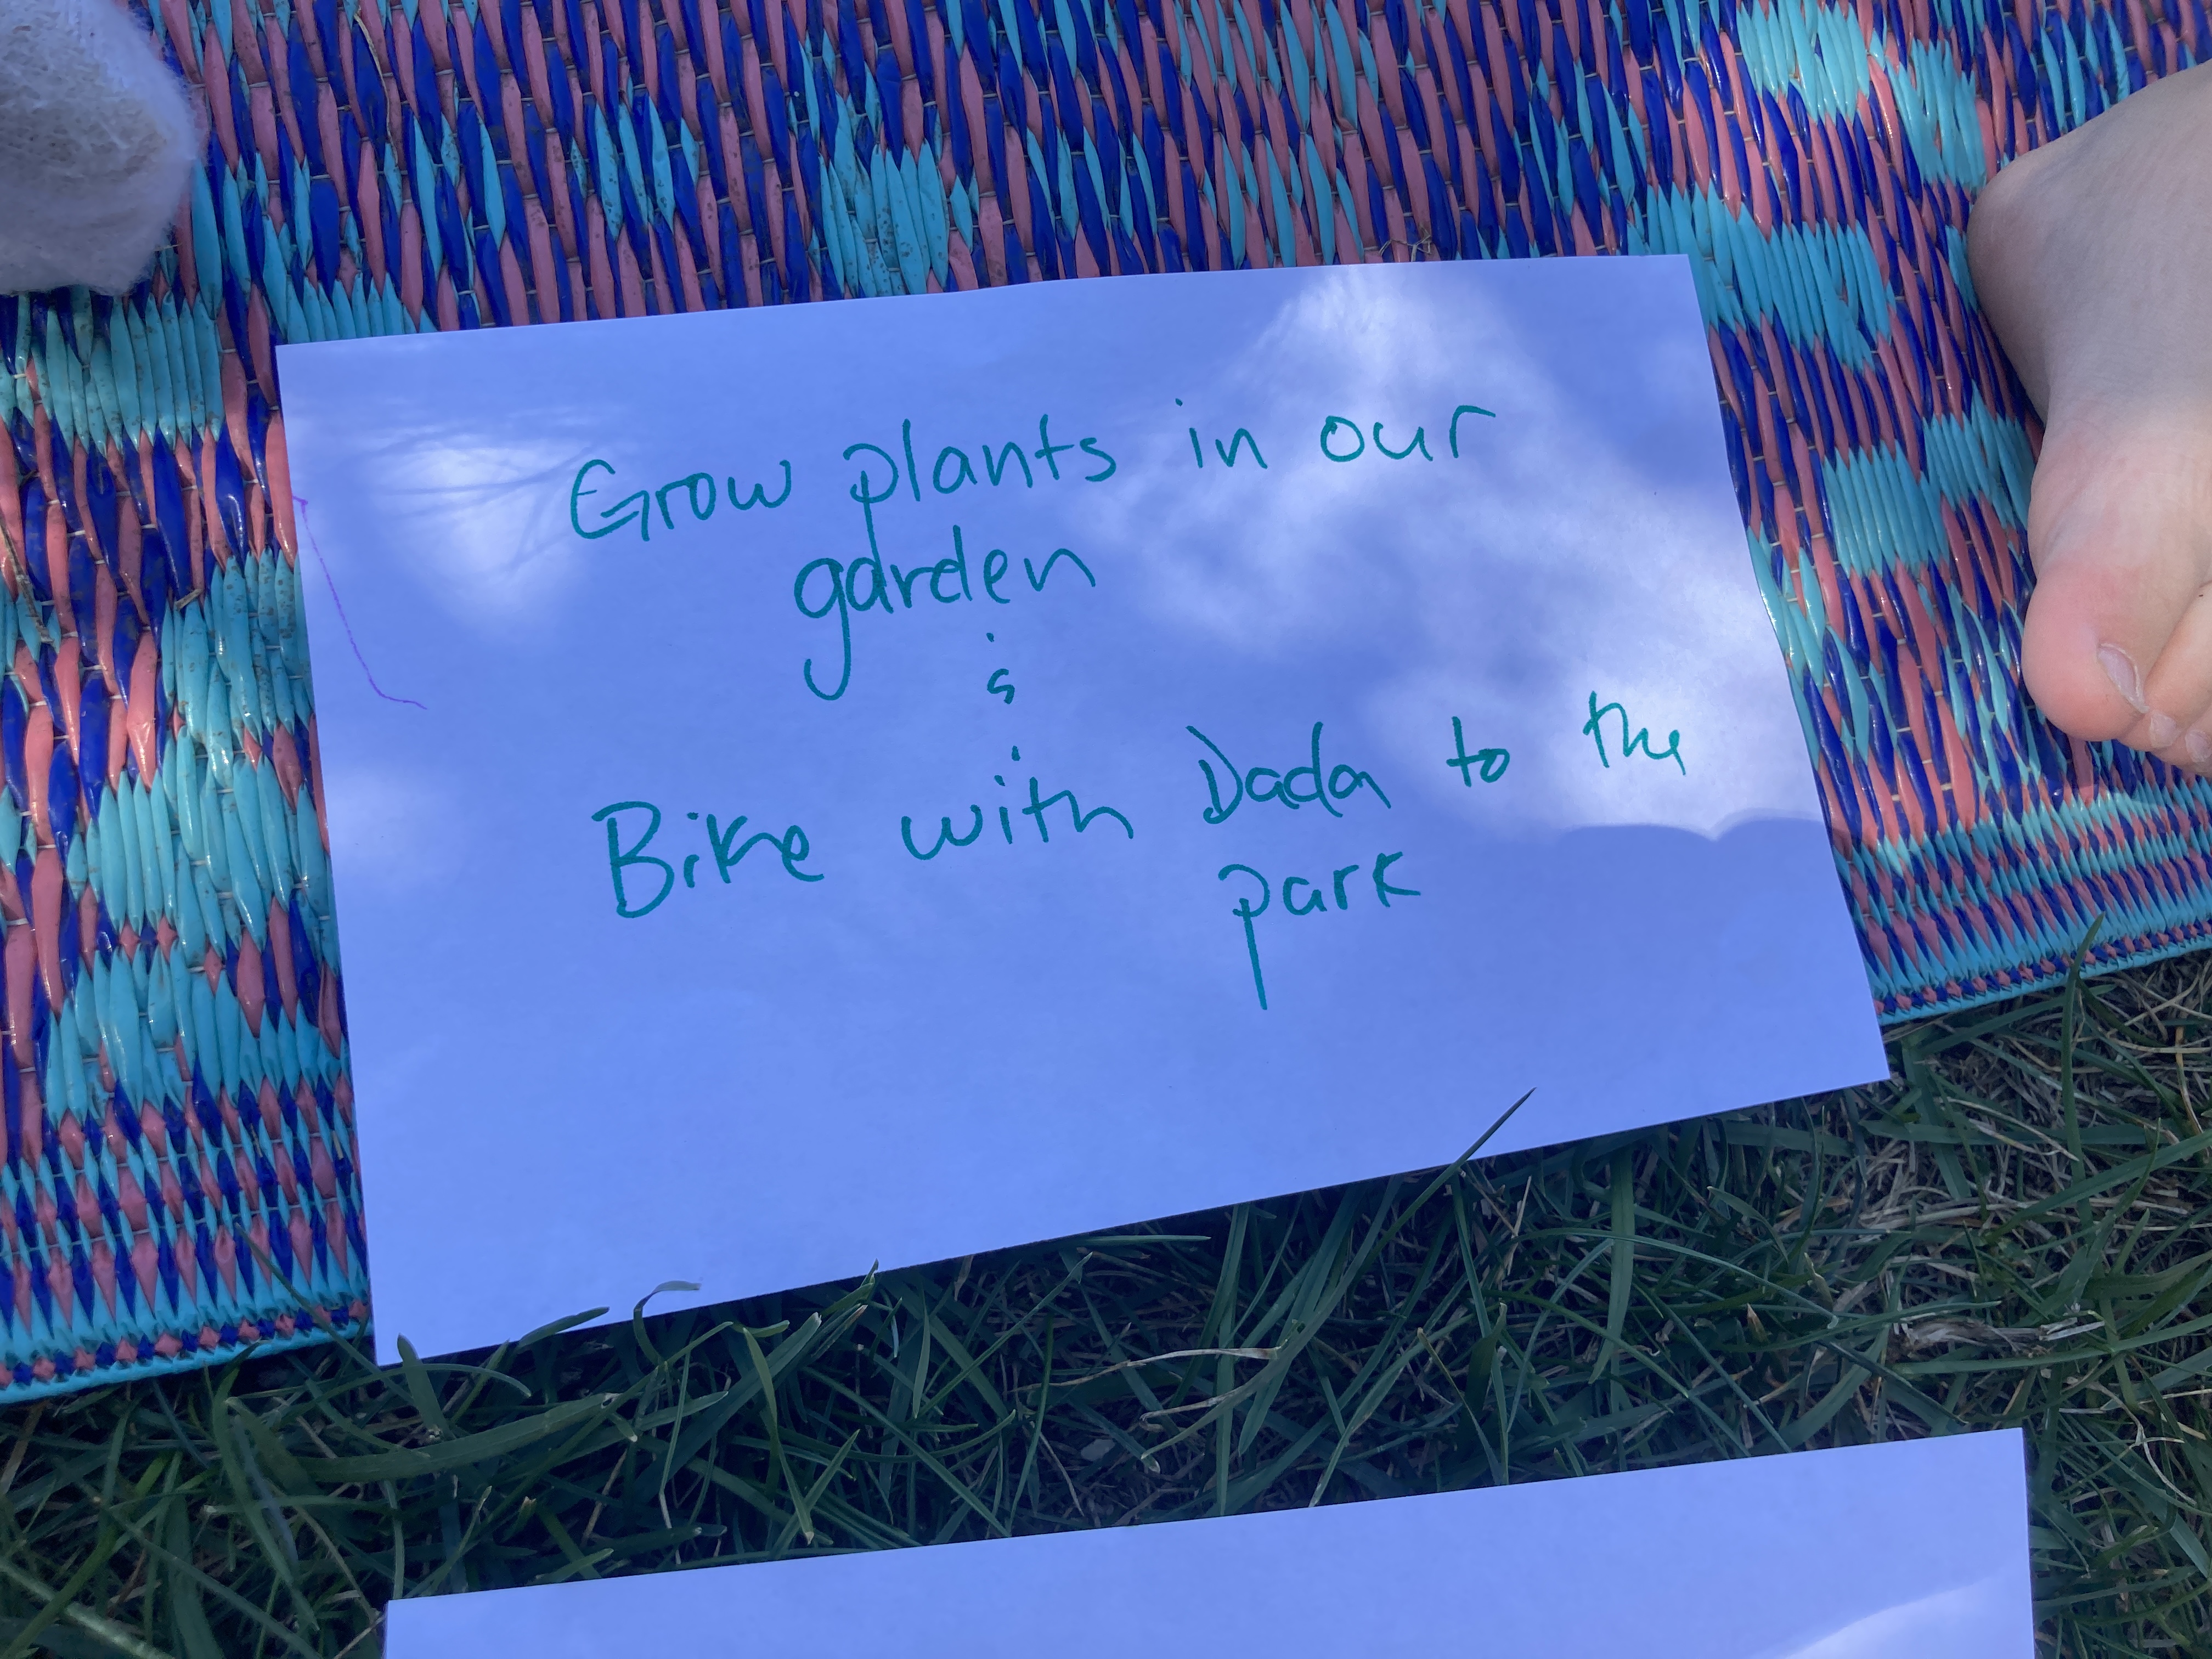 Grow plants in our
garden
&
Bike with Dada to the
park